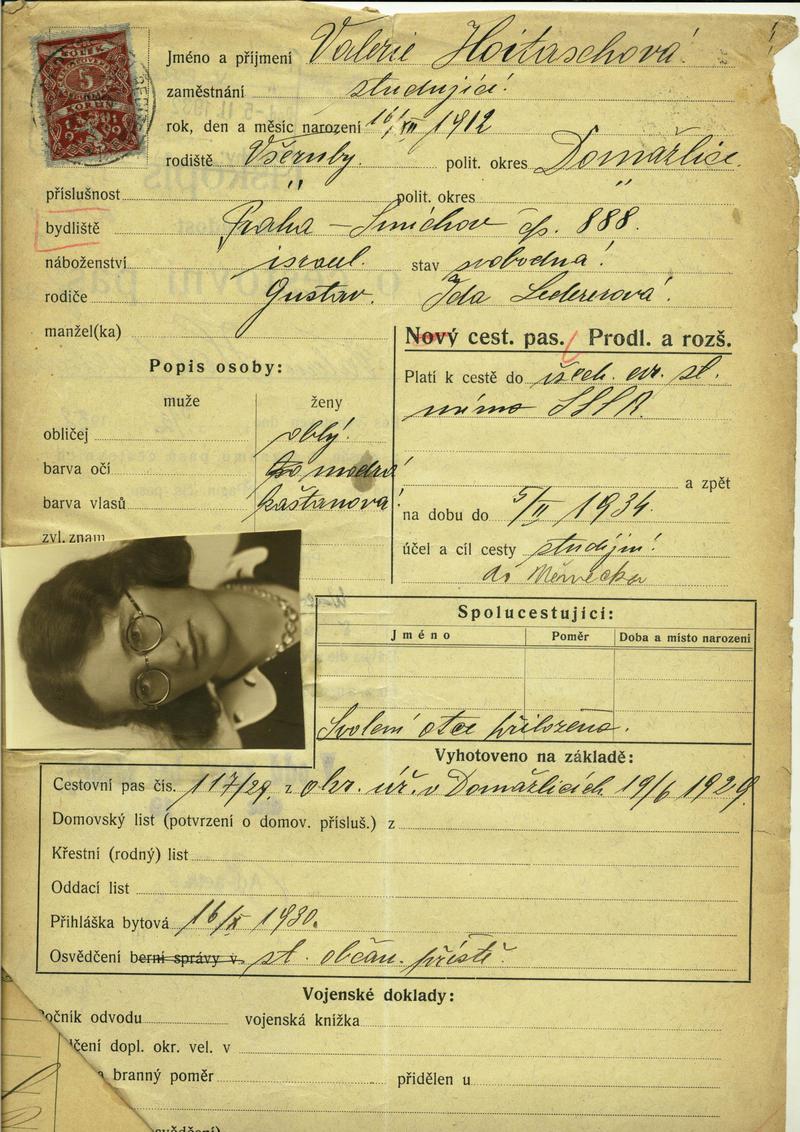 Jméno a příjmení Valerie Hoitaschová.
zaměstnání studující.
rok, den a měsíc narození 16/VII 1912
rodiště Všeruby. polit. okres Domažlice.
příslušnost " polit. okres "
bydliště Praha – Smíchov čp. 888.
náboženství israel. stav svobodná.
rodiče Gustav. Ida Ledererová.
manžel(ka)
Nový cest. pas. Prodl. a rozš.
Popis osoby:
Platí k cestě do všech. evr. st.
muže ženy
mimo SSSR
obličej oblý.
barva očí modrá
a zpět
barva vlasů kaštanová
na dobu do 5/II 1934.
zvl. znam.
účel a cíl cesty studijní.
do Německa
Spolucestující:
Jméno Poměr Doba a místo narození
Svolení otce přiloženo.
Vyhotoveno na základě:
Cestovní pas čís. 117/29. z okr. úř. v Domažlicích 19/6 1929.
Domovský list (potvrzení o domov. přísluš.) z
Křestní (rodný) list
Oddací list
Přihláška bytová 16/X 1930.
Osvědčení berní správy v. st. občan. příště
Vojenské doklady:
Ročník odvodu vojenská knížka
lčení dopl. okr. vel. v
a branný poměr přidělen u